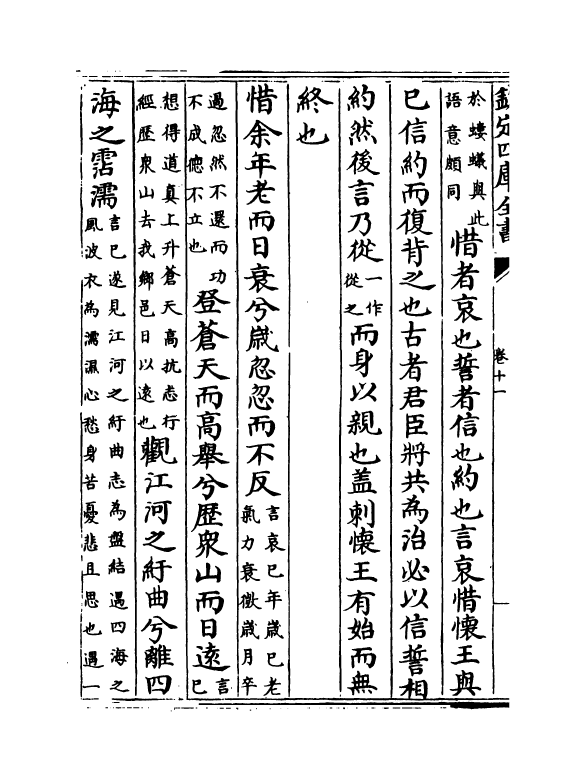 欽定四庫全書
卷十一
於螻蟻與此
語意頗同
惜者哀也誓者信也約也言哀惜懷王與
已信約而復背之也古者君臣將共為治必以信誓相
約然後言乃從一作從之而身以親也盖刺懷王有始而無
終也
惜余年老而日衰兮歲忽忽而不反
言哀已年歲已老
氣力衰微歲月卒
過忽然不還而功
不成德不立也
登蒼天而高舉兮歷衆山而日遠
言
已
想得道真上升蒼天高抗志行
經歷衆山去我鄉邑日以遠也
觀江河之紆曲兮離四
海之霑濡
言已遂見江河之紆曲志為盤結遇四海之
風波衣為濡濕心愁身苦憂悲且思也遇一